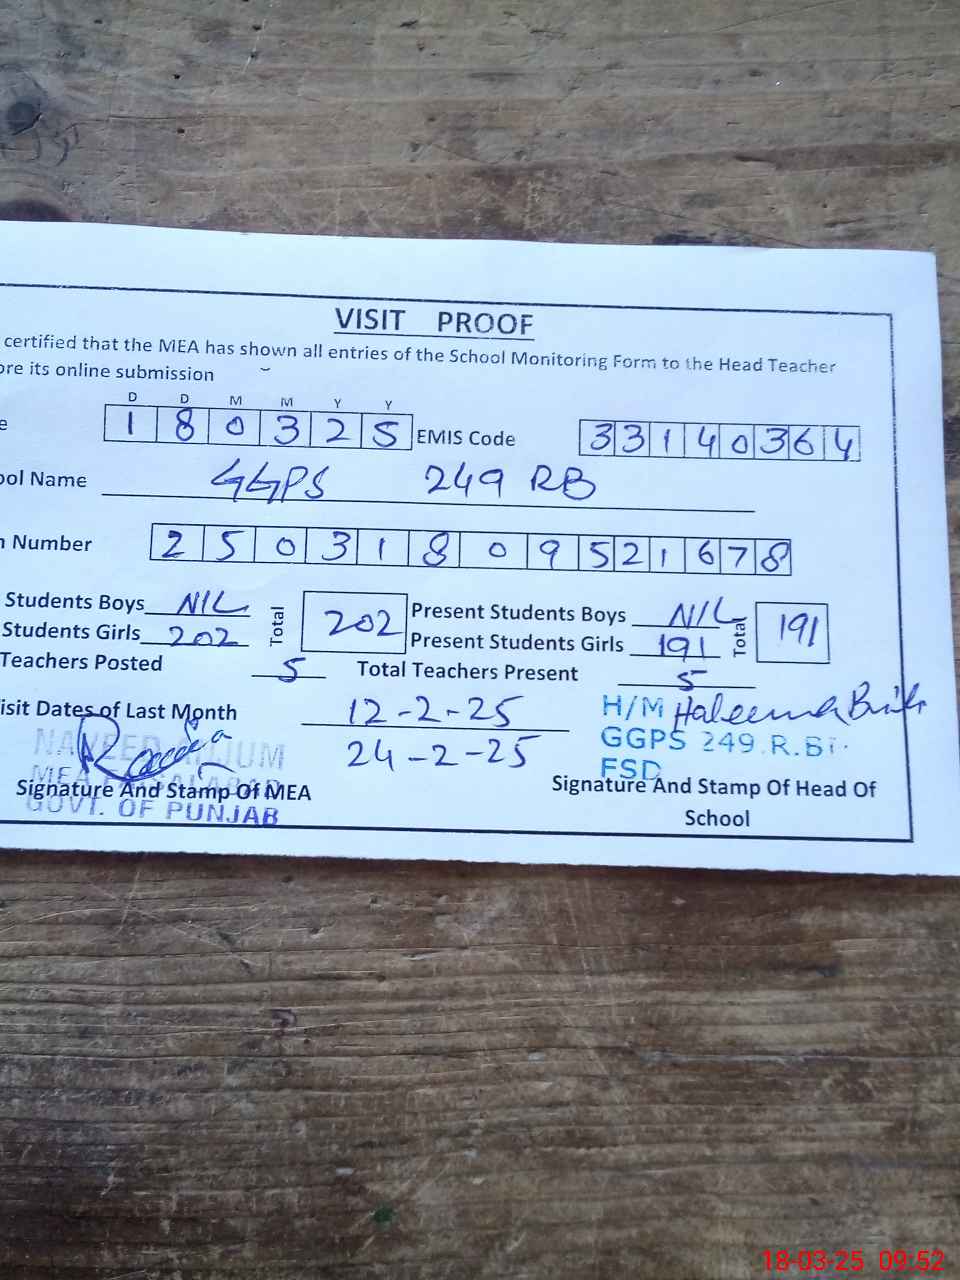 VISIT PROOF
certified that the MEA has shown all entries of the School Monitoring Form to the Head Teacher
ore its online submission
D D M M Y Y
e 1 8 0 3 2 5 EMIS Code 3 3 1 4 0 3 6 4
ool Name GGPS 249 RB
n Number 2 5 0 3 1 8 0 9 5 2 1 6 7 8
Students Boys NIL Total 202 Present Students Boys NIL Total 191
Students Girls 202 Present Students Girls 191
Teachers Posted 5 Total Teachers Present 5
isit Dates of Last Month 12-2-25
24-2-25
H/M Haleema
GGPS 249.R.B
FSD
NAVEED ANJUM
MEA
Signature And Stamp Of MEA
GOVT. OF PUNJAB
Signature And Stamp Of Head Of
School
18-03-25 09:52